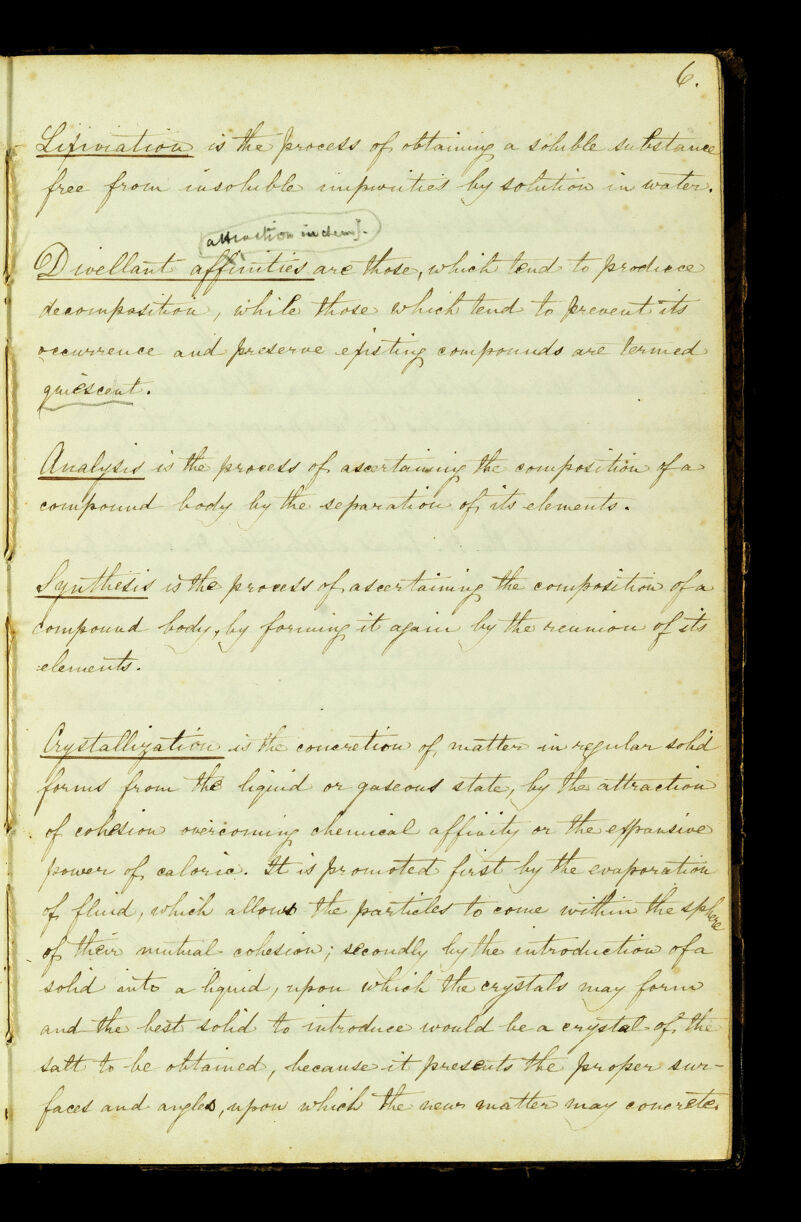 6.
Lixiviation is the process of obtaining a soluble substance
free from insoluble impurities by solution in water.
(attraction in chem].)
Divellant affinities are those, which tend to produce
decomposition, while those which tend to prevent its
occurrence and preserve existing compounds are termed
quiescent.
Analysis is the process of ascertaining the composition of a
compound body by the separation of its elements.
Synthesis is the process of ascertaining the composition of a
compound body, by forming it again by the reunion of its
elements.
Crystallization is the concretion of matter in regular solid
forms from the liquid or gaseous state, by the attraction
of cohesion overcoming chemical affinity or the expansive
power of caloric. It is promoted first by the evaporation
of fluid, which allows the particles to come within the sphere
of their mutual cohesion; secondly by the introduction of a
solid into a liquid, upon which the crystals may form
and the best solid to introduce would be a crystal of the
salt to be obtained, because it presents the proper sur-
faces and angles, upon which the new matter may concrete.